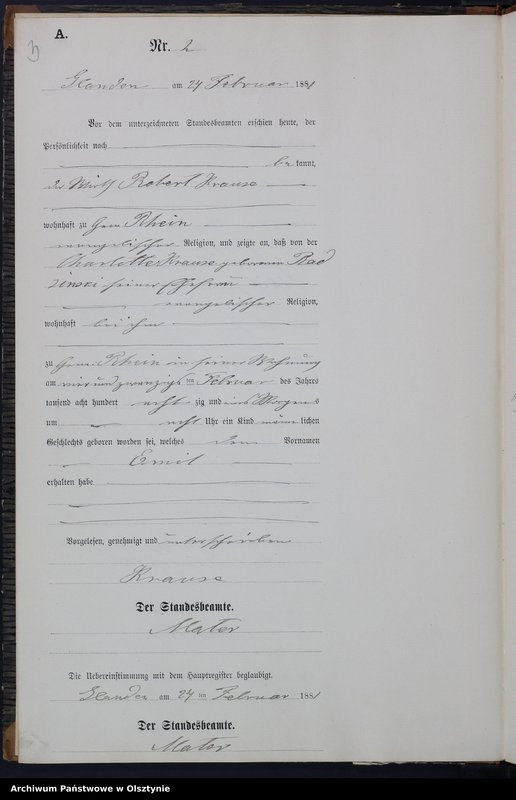 A.
Nr. 2
am 24 Februar 1881
Vor dem unterzeichneten Standesbeamten erschien heute, der
Persönlichkeit nach
be kannt,
der Wirth Robert Krause
wohnhaft zu Rhein
evangelischer Religion, und zeigte an, daß von der
Charlotte Krause geborenen
seiner Ehefrau
evangelischer Religion,
wohnhaft bei ihm
zu Rhein in seiner Wohnung
am vier und zwanzigs ten Februar des Jahres
tausend acht hundert acht zig und eins Morgens
um acht Uhr ein Kind männ lichen
Geschlechts geboren worden sei, welches den Vornamen
Emil
erhalten habe
Vorgelesen, genehmigt und unterschrieben
Krause
Der Standesbeamte.
Mater
Die Uebereinstimmung mit dem Hauptregister beglaubigt.
am 24 ten Februar 1881
Der Standesbeamte.
Mater
Archiwum Państwowe w Olsztynie